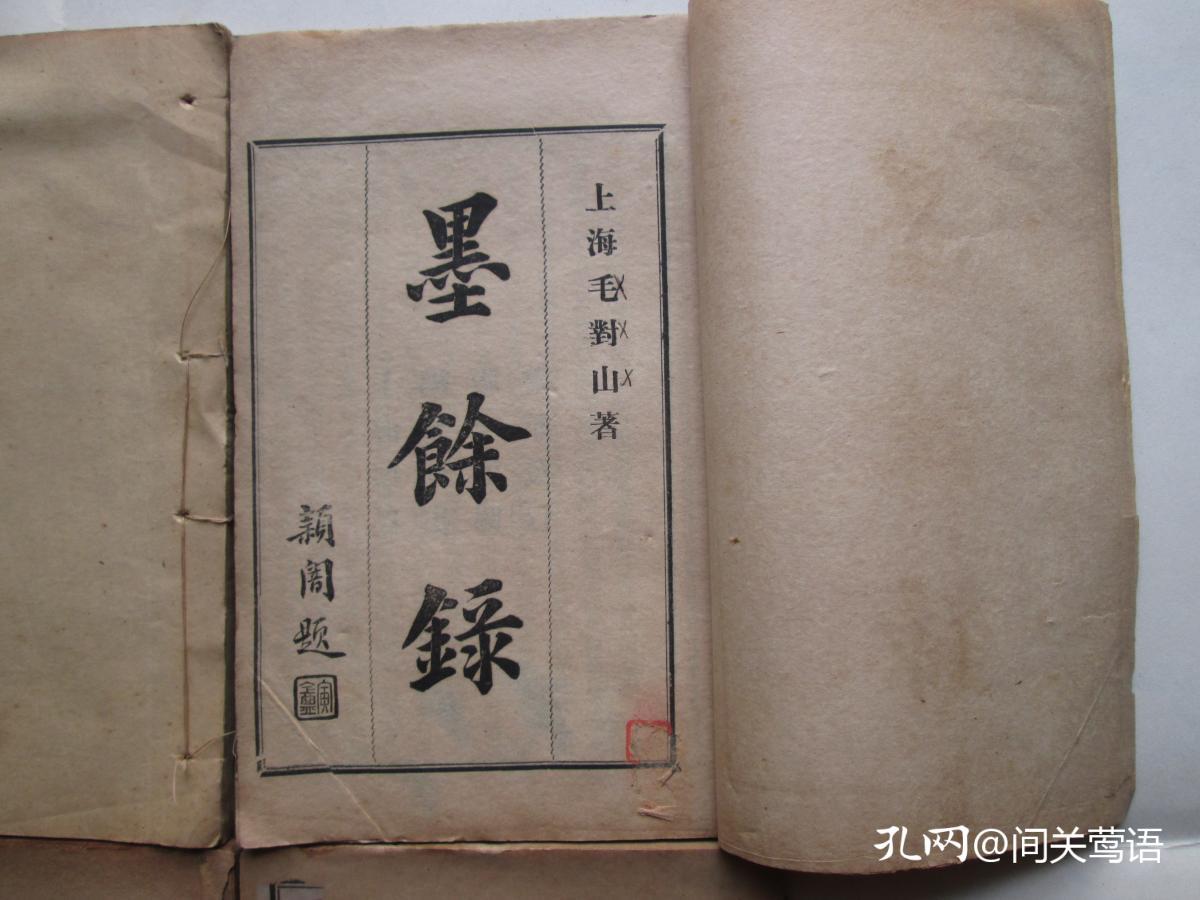 上海毛對山著
墨餘錄
潁閣題
孔网@间关莺语